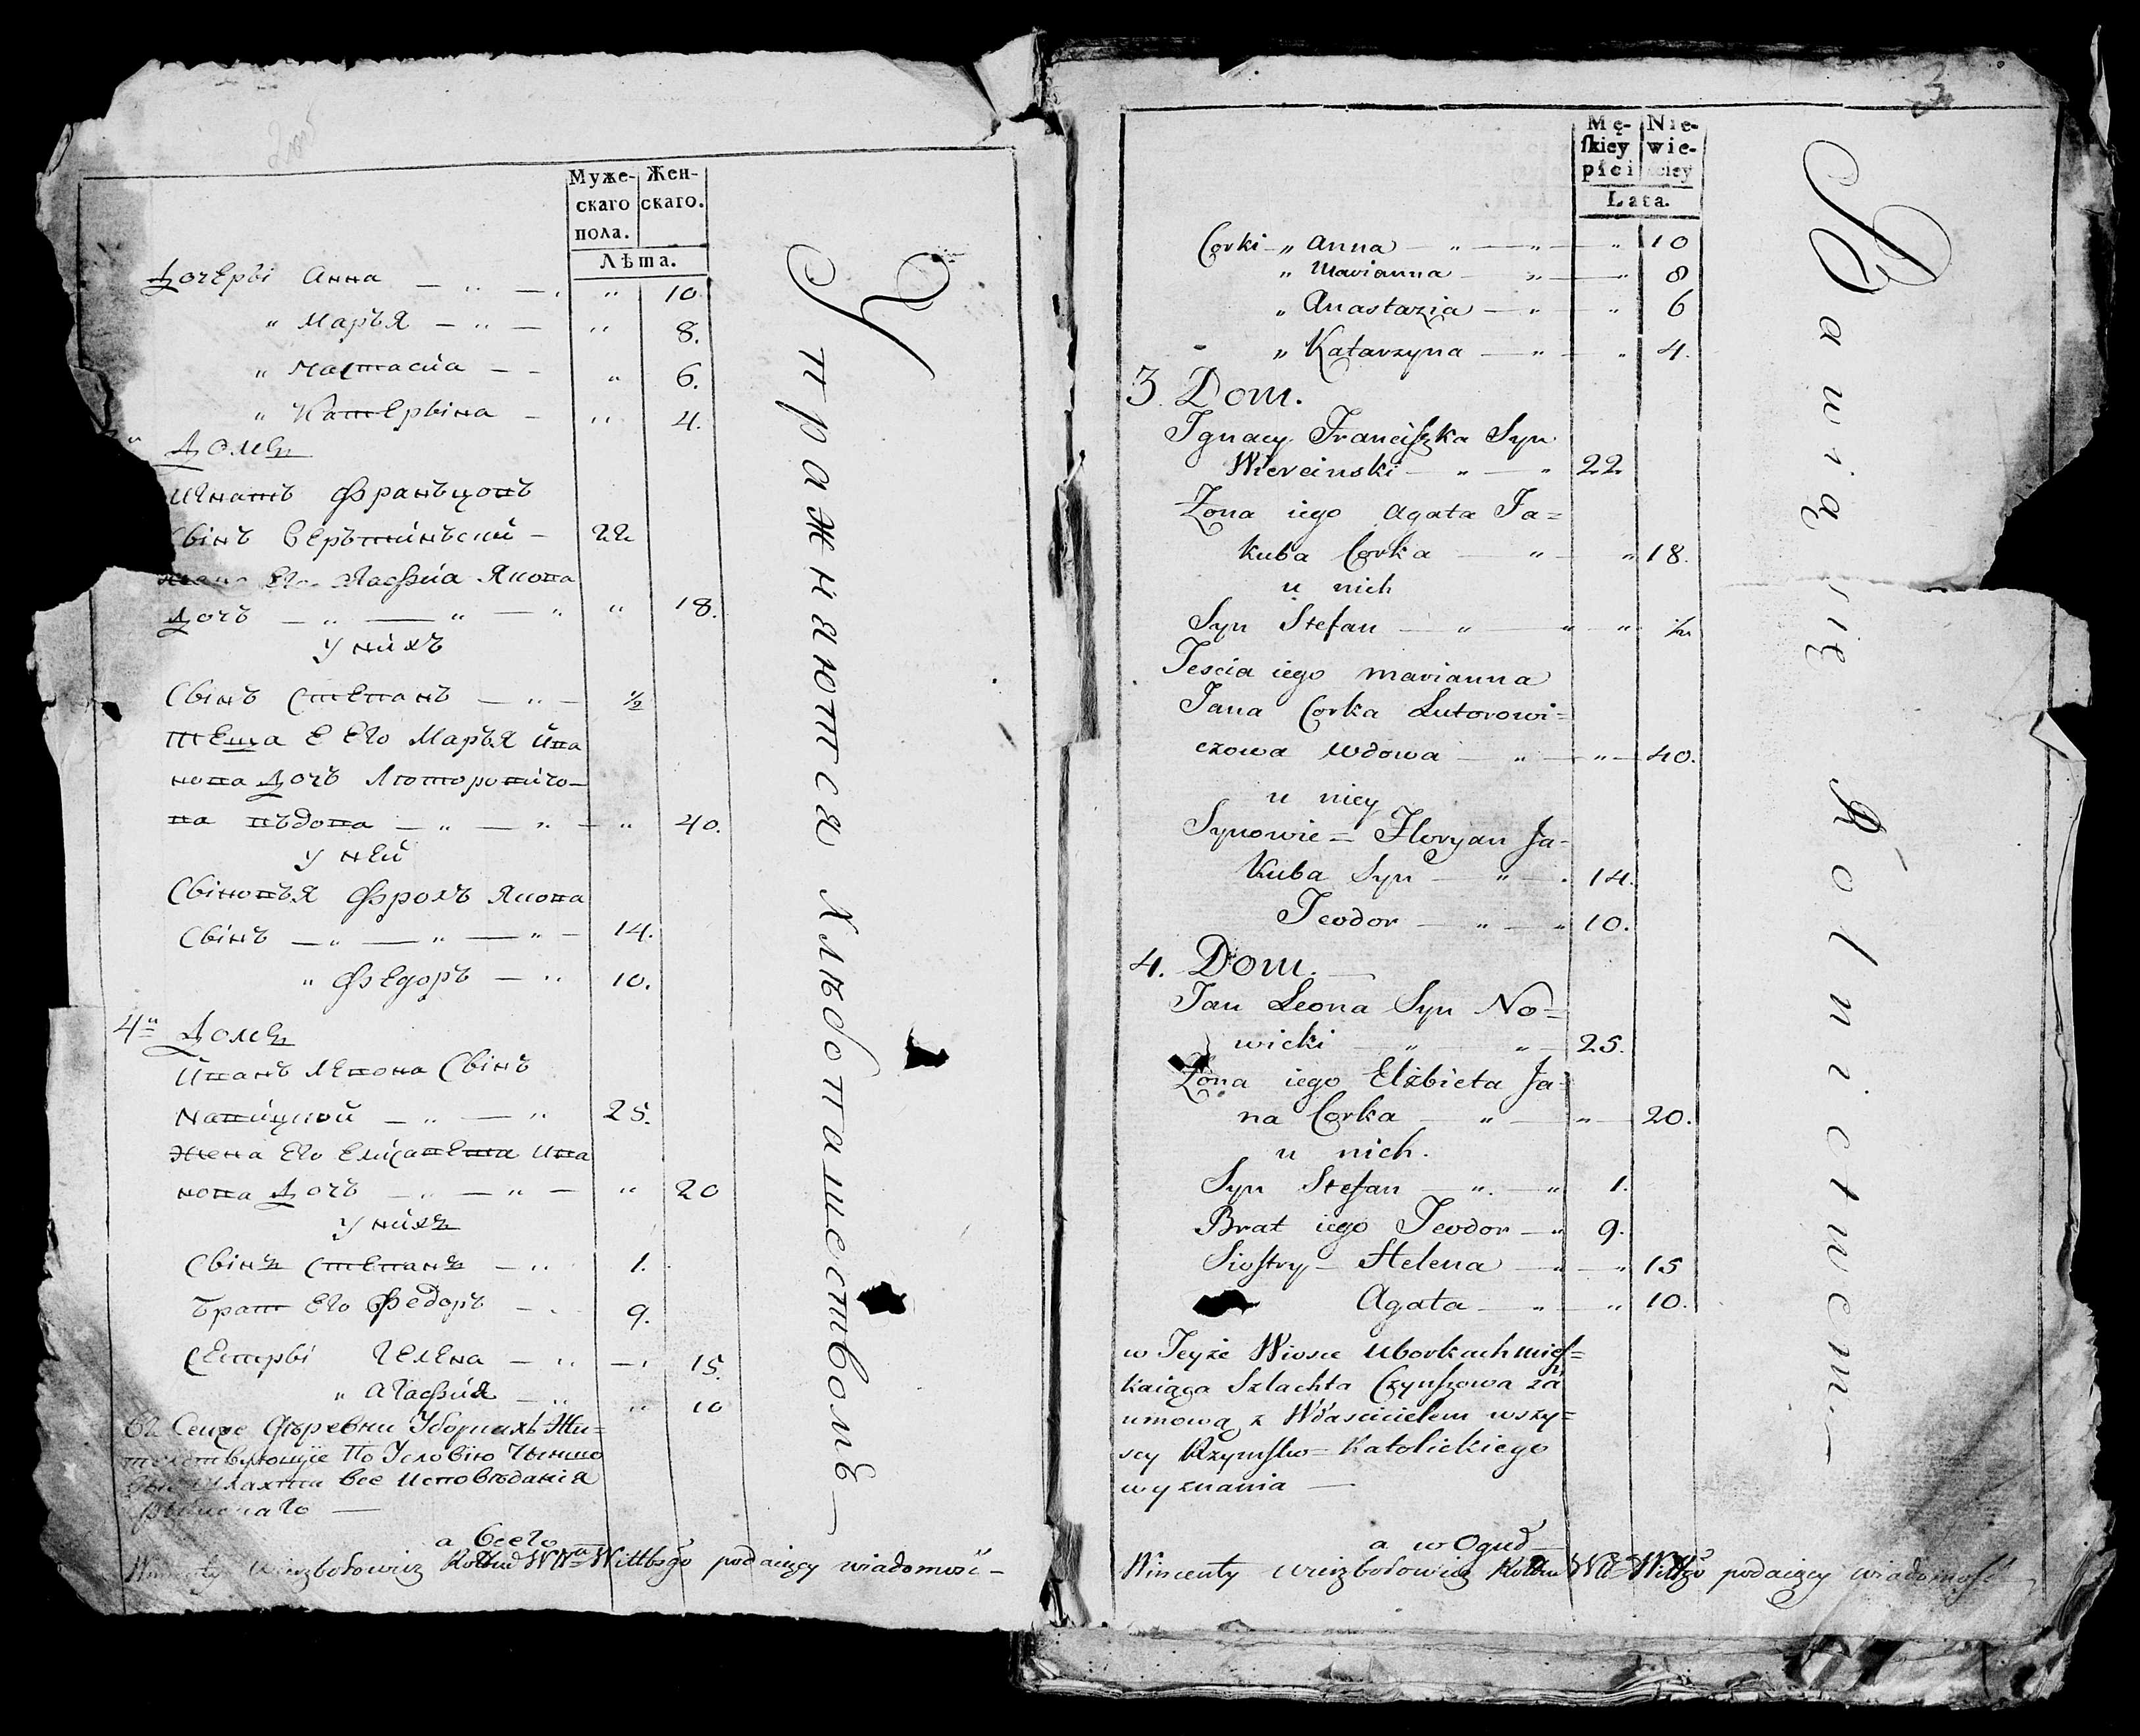 Муже-
скаго
пола.
Жен-
скаго.
Лѣта.
Дочерьі Анна — „ — „ 10.
„ Марья — „ — „ 8.
„ Настасия — — „ 6.
„ Катерьіна — „ 4.
Домъ
Игнатъ Францовъ
Сьінъ Веръцинъский — 22
Жена Его Агафия Якова
Дочь — „ — „ — „ „ 18.
У нихъ
Сьінъ Степанъ — „ — ½
Теща Е Его Марья Ива
нова Дочь Лютровичо—
ва въдова — „ — „ — „ 40.
У ней
Сьіновья Фролъ Якова
Сьінъ — „ — „ — „ — 14.
„ Федоръ — „ 10.
4й Домъ
Иванъ Левона Сьінъ
Навицкой — „ — „ 25.
Жена Его Елисавета Ива
нова Дочь — „ — „ — „ 20
У нихъ
Сьінъ Степанъ — „ 1.
Братъ Его Федоръ — „ 9.
Сестрьі Гелена — „ — „ 15.
„ Агафия — „ „ 10
Въ Сей же Деревни Уборкахъ Жи=
тельствующие По Условию Чыншо
вые Шляхта все Исповѣдания
Рымскаго —
а Всего
Wincenty Wierzbołowicz podaiący wiadomość —
Упражняются Хлѣбопашествомъ —
3
Mę-
skiey
płci
Nie-
wie-
sciey
Lata.
Corki „ Anna — „ — „ — „ 10
„ Marianna — „ — „ 8
„ Anastazia — „ — „ 6
„ Katarzyna — „ — „ 4.
3. Dom.
Ignacy Franciszka Syn
Wiercinski — „ — „ 22
Zona iego Agata Ja=
kuba Corka — „ — „ 18.
u nich
Syn Stefan — „ — „ „ ½
Tescia iego Marianna
Jana Corka Lutorowi=
czowa wdowa — „ — „ — 40.
u niey
Synowie = Floryan Ja-
kuba Syn — „ — „ 14.
Teodor — „ — „ 10.
4. Dom. —
Jan Leona Syn No=
wicki — „ — „ — 25.
Zona iego Elżbieta Ja=
na Corka — „ — „ — 20.
u nich.
Syn Stefan — „ — „ 1.
Brat iego Teodor — „ 9.
Siostry — Helena — „ — „ 15
Agata — „ — „ 10.
w Teyże Wiosce Uborkach mies=
kaiąca Szlachta Czynszowa za
umową z Własciscielem wszy=
scy Rzymsko = Katolickiego
wyznania —
a w Oguł —
Wincenty Wierzbołowicz podaiący wiadomość
Bawią się Rolnictwem —